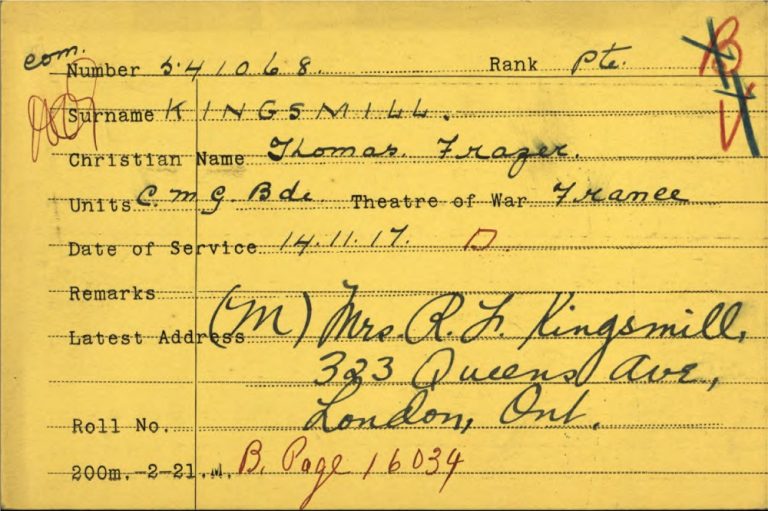 com.
Number 541068. Rank Pte.
Surname KINGSMILL.
Christian Name Thomas. Frazer.
Units C.M.G. Bde. Theatre of War France
Date of Service 14.11.17. D
Remarks
Latest Address (M) Mrs. R. F. Kingsmill,
323 Queens Ave,
London, Ont.
Roll No.
200m.-2-21.M. B. Page 16034
B
V